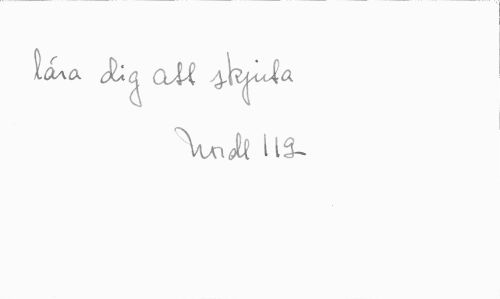 lära dig att skjuta
Nordl 119